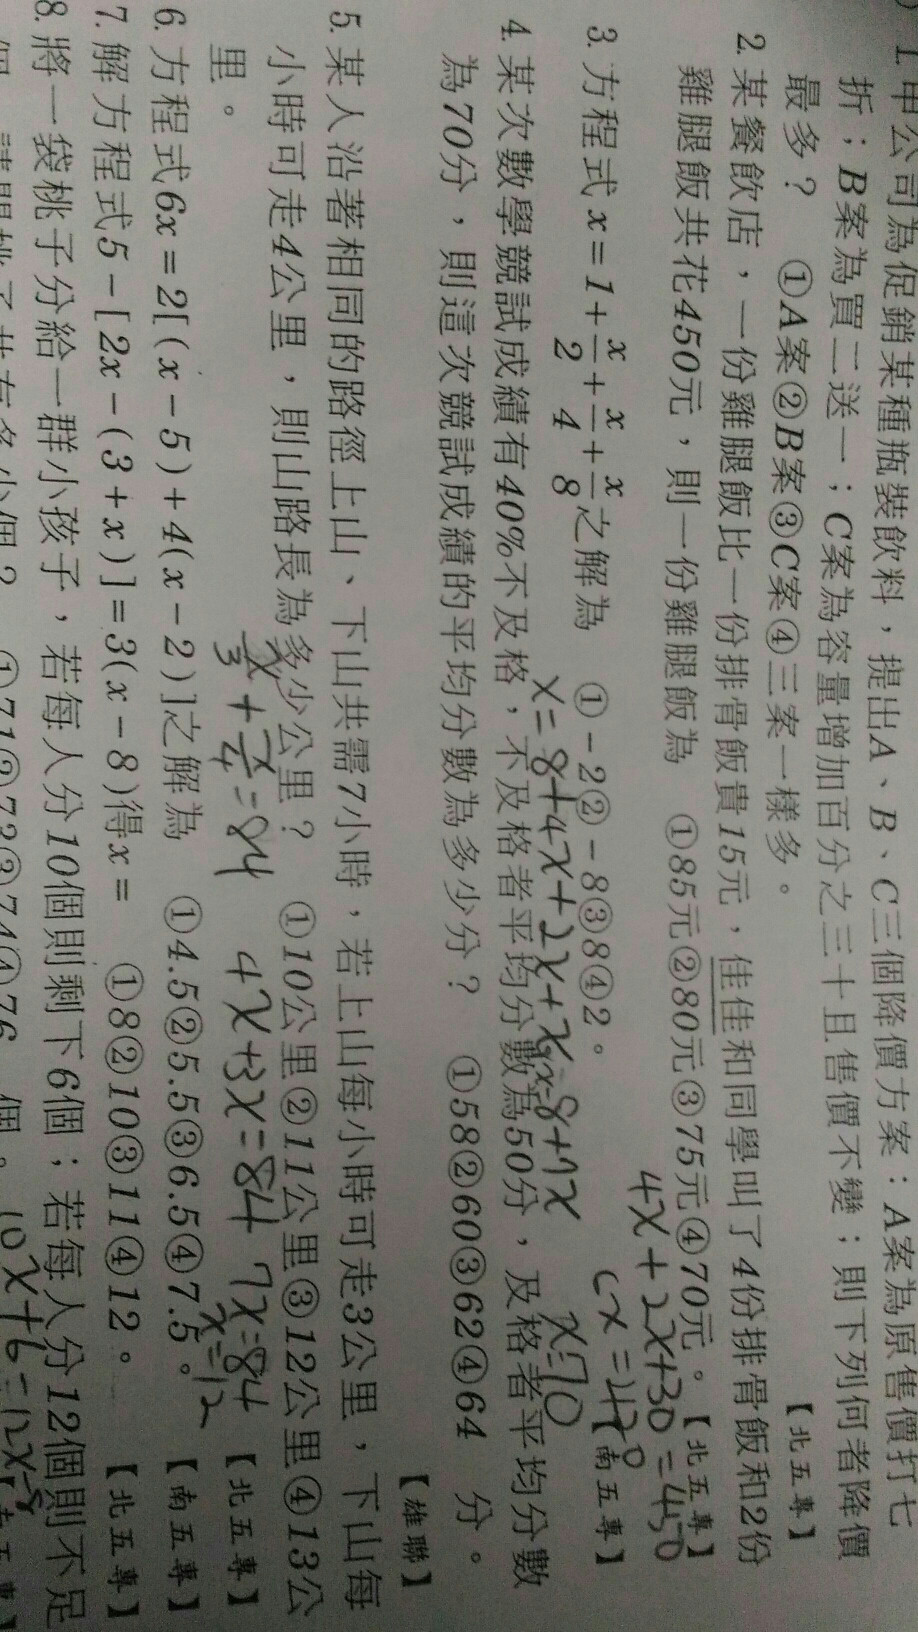 1.甲公司為促銷某種瓶裝飲料，提出A、B、C三個降價方案：A案為原售價打七
折；B案為買二送一；C案為容量增加百分之三十且售價不變；則下列何者降價
最多？ ①A案②B案③C案④三案一樣多。 【北五專】
2.某餐飲店，一份雞腿飯比一份排骨飯貴15元，佳佳和同學叫了4份排骨飯和2份
雞腿飯共花450元，則一份雞腿飯為 ①85元②80元③75元④70元。【北五專】
4x+2x+30=450
3.方程式x=1+x/2+x/4+x/8之解為 ①-2②-8③8④2。 【南五專】
x=8+4x+2x+x
x=70
4.某次數學競試成績有40%不及格，不及格者平均分數為50分，及格者平均分數
為70分，則這次競試成績的平均分數為多少分？ ①58②60③62④64 分。
【雄聯】
5.某人沿著相同的路徑上山、下山共需7小時，若上山每小時可走3公里，下山每
小時可走4公里，則山路長為多少公里？ ①10公里②11公里③12公里④13公
里。 【北五專】
x/3+x/4=84 4x+3x=84 7x=84
x=12
6.方程式6x=2[(x-5)+4(x-2)]之解為 ①4.5②5.5③6.5④7.5。 【南五專】
7.解方程式5-[2x-(3+x)]=3(x-8)得x= ①8②10③11④12。 【北五專】
8.將一袋桃子分給一群小孩子，若每人分10個則剩下6個；若每人分12個則不足
10x+6=12x-8